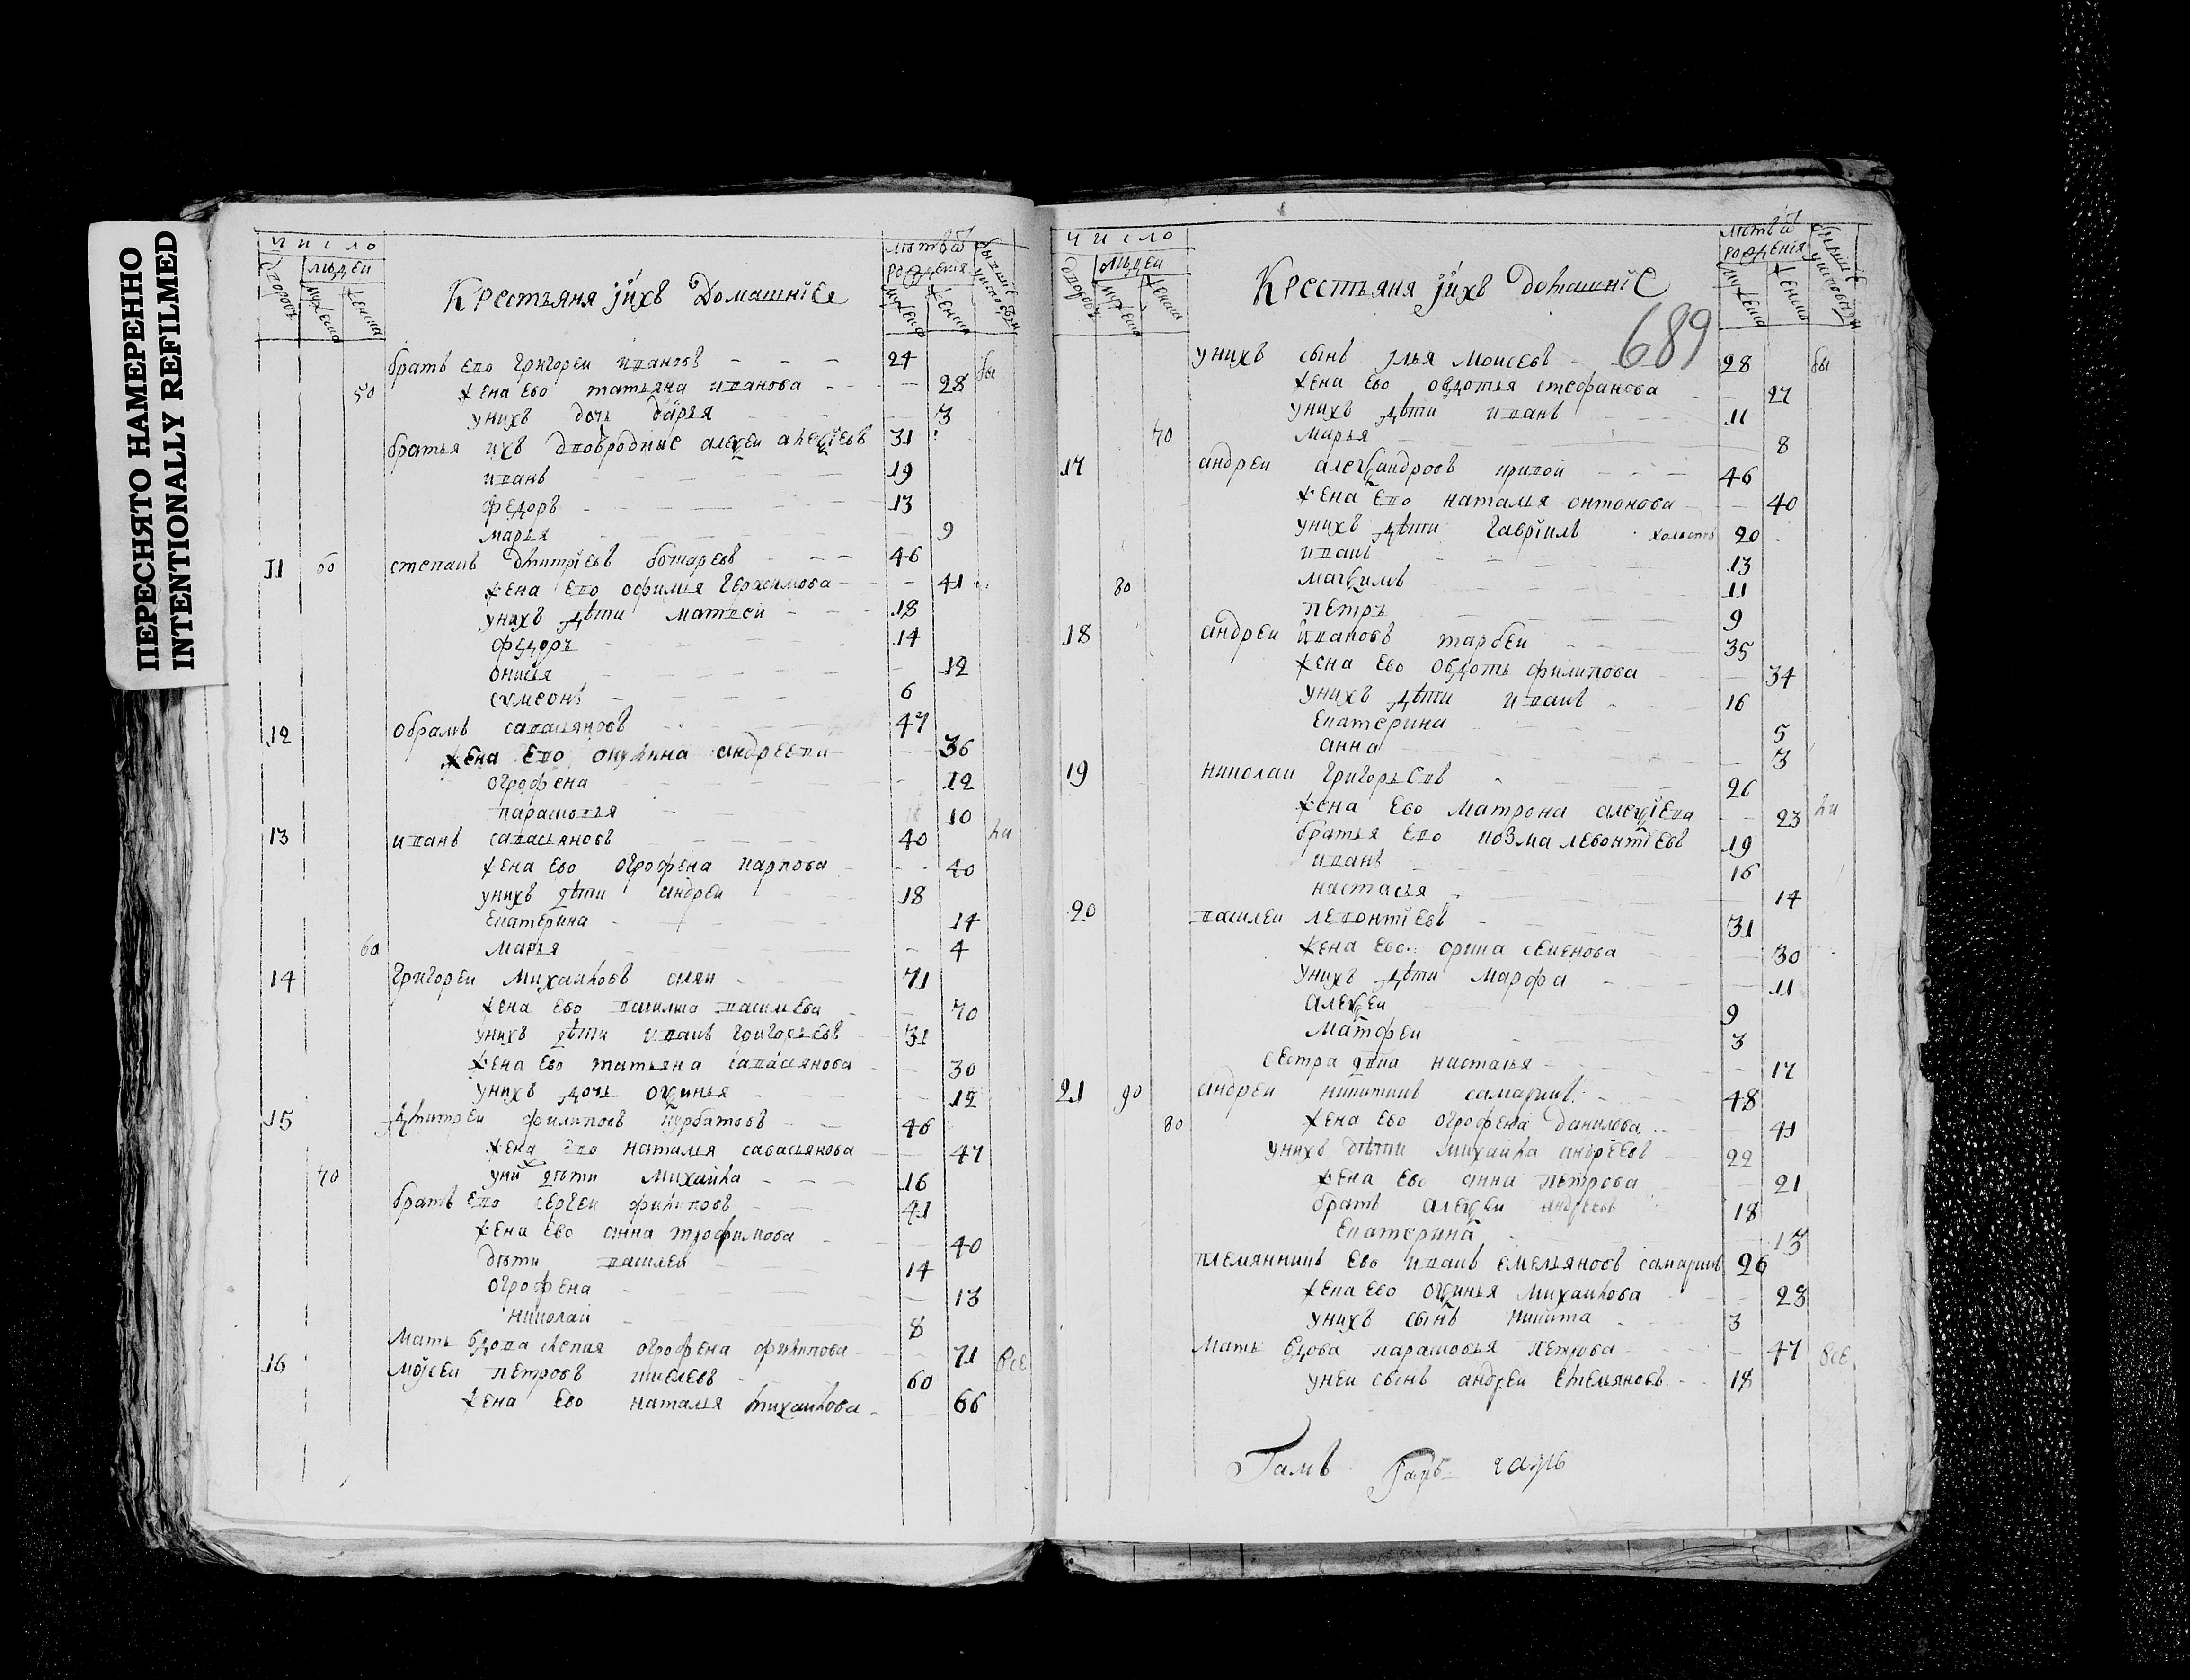 ПЕРЕСНЯТО НАМЕРЕННО
INTENTIONALLY REFILMED
число
людей
Крестьяня јихъ Домашнїе
лѣтъ ѿ
рождения
братъ ево григореи ивановъ 24
50 жена ево татьяна иванова 28
унихъ дочь дарья 3
братья ихъ двоюродные алеѯеи алеѯїевъ 31
иванъ 19
федоръ 13
марья 9
11 60 степанъ дмитрїевъ 46
жена ево офимья герасимова 41
унихъ дѣти матвеи 18
федоръ 14
онисья 12
сѵмеонъ 6
12 обрамъ савасьяновъ 47
жена ево окулина андреева 36
огрофена 12
парасковья 10
13 иванъ савасьяновъ 40
жена ево огрофена карпова 40
унихъ дѣти андреи 18
екатерина 14
60 марья 4
14 григореи михаиловъ 71
жена ево василиса васильева 70
унихъ дѣти иванъ григорьевъ 31
жена ево татьяна савасьянова 30
унихъ дочь оѯинья 12
15 дмитреи филиповъ курбатовъ 46
жена ево наталья савасьянова 47
70 уних дѣти михаила 16
братъ ево сергеи филиповъ 41
жена ево анна трофимова 40
дѣти василеи 14
огрофена 13
николаи 8
мать вдова слепая огрофена филипова 71 все
16 моѵсеи петровъ киселевъ 60
жена ево наталья михаилова 66
число
людей
Крестьяня јихъ домашнїе
лѣтъ ѿ
рождения
689
унихъ сынъ илья моисеевъ 28
жена ево овдотья стефанова 27
унихъ дѣти иванъ 11
70 марья 8
17 андреи алеѯандровъ кривои 46
жена ево наталья онтонова 40
унихъ дѣти гаврїилъ холостъ 20
иванъ 13
80 маѯимъ 11
петръ 9
18 андреи ивановъ 35
жена ево овдоть филипова 34
унихъ дѣти иванъ 16
екатерина 5
анна 3
19 николаи григорьевъ 26
жена ево матрона алеѯїева 23
братья ево козма левонтїевъ 19
иванъ 16
настасья 14
20 василеи левонтїевъ 31
жена ево орина семенова 30
унихъ дѣти марфа 11
алеѯеи 9
матфеи 3
сестра дѣвка настасья 17
21 90 андреи никитинъ самаринъ 48
80 жена ево огрофена данилова 41
унихъ дѣти михаила андреевъ 22
жена ево анна петрова 21
братъ алеѯеи андреевъ 18
екатерина 13
племянникъ ево иванъ емельяновъ самаринъ 26
жена ево оѯинья михаилова 23
унихъ сынъ никита 3
мать вдова парасковья петрова 47 все
унеи сынъ андреи емельяновъ 18